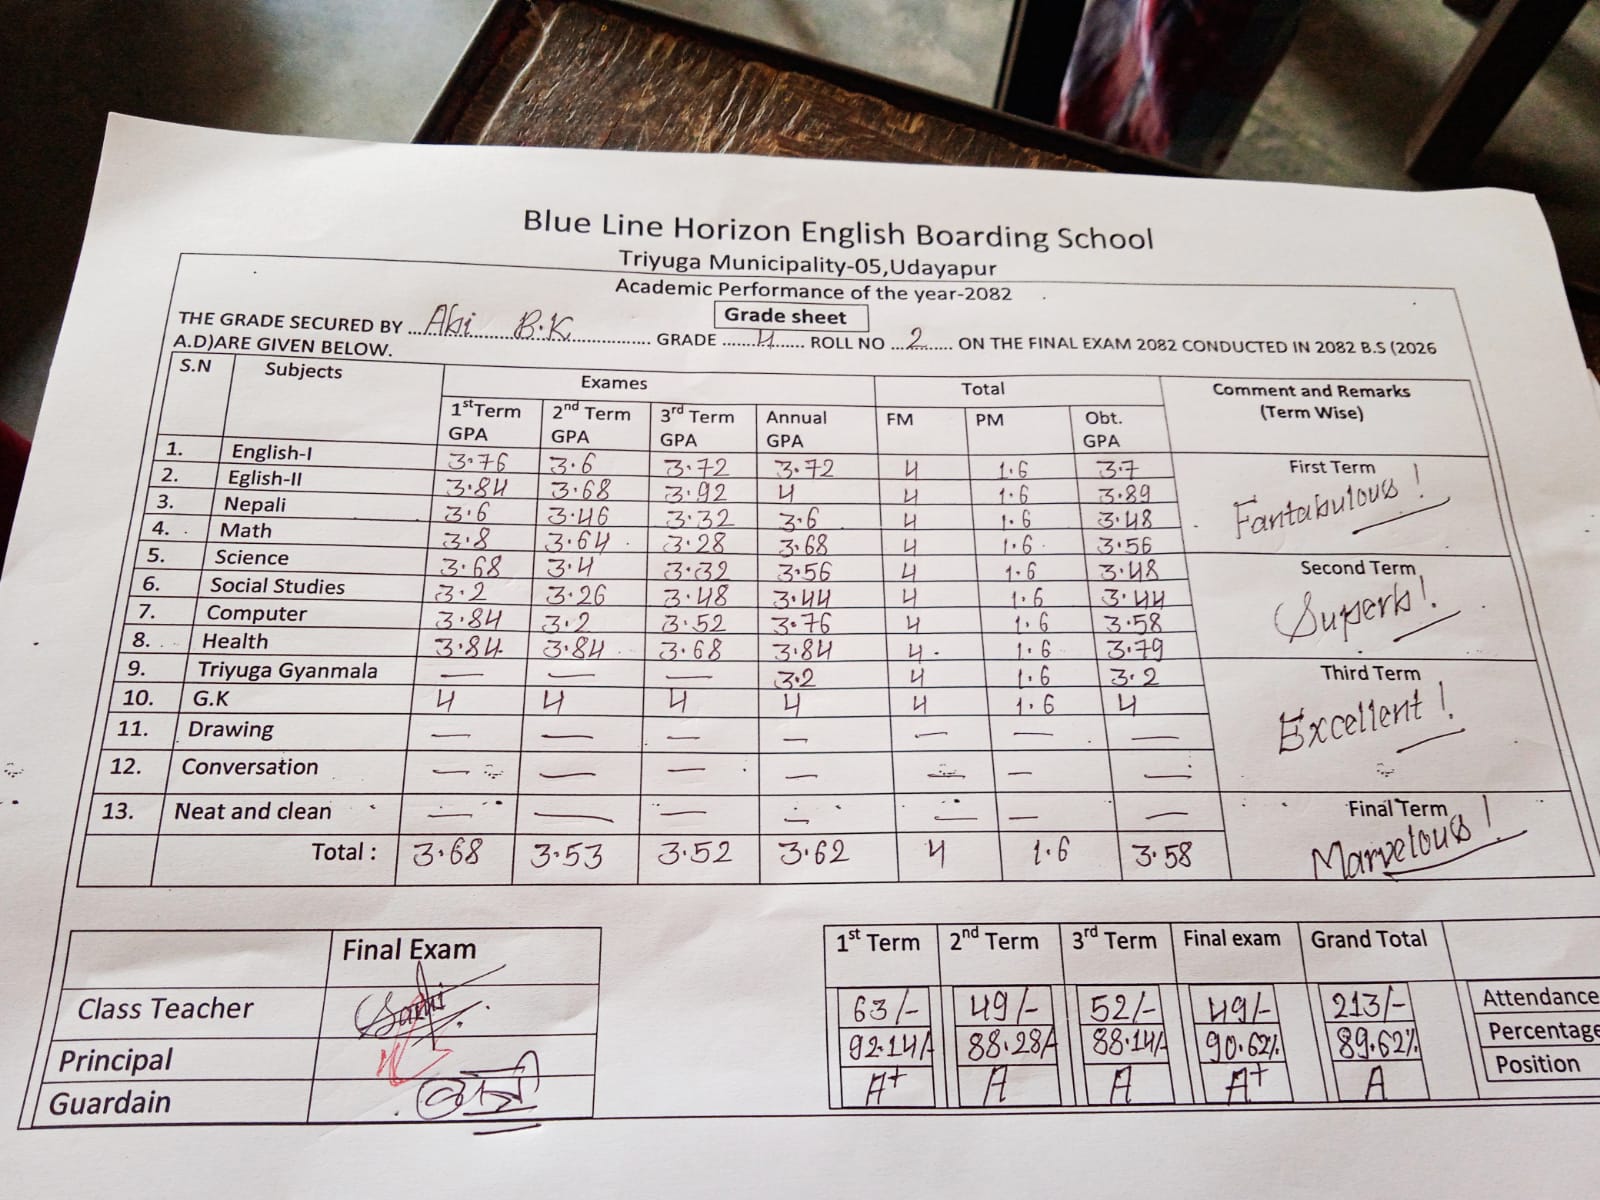 Blue Line Horizon English Boarding School
Triyuga Municipality-05,Udayapur
Academic Performance of the year-2082
Grade sheet
THE GRADE SECURED BY ...Abi B.K... GRADE ...4... ROLL NO ...2... ON THE FINAL EXAM 2082 CONDUCTED IN 2082 B.S (2026
A.D)ARE GIVEN BELOW.
S.N Subjects Exames Total Comment and Remarks (Term Wise)
1st Term GPA 2nd Term GPA 3rd Term GPA Annual GPA FM PM Obt. GPA
1. English-I 3.76 3.6 3.72 3.72 4 1.6 3.7
2. Eglish-II 3.84 3.68 3.92 4 4 1.6 3.89
3. Nepali 3.6 3.46 3.32 3.6 4 1.6 3.48
4. Math 3.8 3.64 3.28 3.68 4 1.6 3.56
5. Science 3.68 3.4 3.32 3.56 4 1.6 3.48
6. Social Studies 3.2 3.26 3.48 3.44 4 1.6 3.44
7. Computer 3.84 3.2 3.52 3.76 4 1.6 3.58
8. Health 3.84 3.84 3.68 3.84 4 1.6 3.79
9. Triyuga Gyanmala — — — 3.2 4 1.6 3.2
10. G.K 4 4 4 4 4 1.6 4
11. Drawing — — — — — — —
12. Conversation — — — — — — —
13. Neat and clean — — — — — — —
Total : 3.68 3.53 3.52 3.62 4 1.6 3.58
First Term
Fantabulous !
Second Term
Superb !
Third Term
Excellent !
Final Term
Marvelous !
Final Exam
Class Teacher
Principal
Guardain
1st Term 2nd Term 3rd Term Final exam Grand Total
63/- 49/- 52/- 49/- 213/- Attendance
92.14% 88.28% 88.14% 90.62% 89.62% Percentage
A+ A A A+ A Position